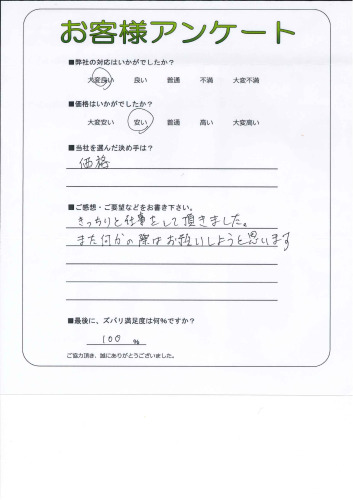 お客様アンケート
■弊社の対応はいかがでしたか?
大変良い 良い 普通 不満 大変不満
■価格はいかがでしたか?
大変安い 安い 普通 高い 大変高い
■当社を選んだ決め手は?
価格
■ご感想・ご要望などをお書き下さい。
きっちりと仕事をして頂きました。
また何かの際はお払いしようと思います
■最後に、ズバリ満足度は何%ですか?
100 %
ご協力頂き、誠にありがとうございました。